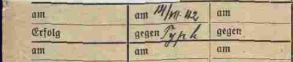 am am 14/VII. 42 am
Erfolg gegen Typh gegen
am am am